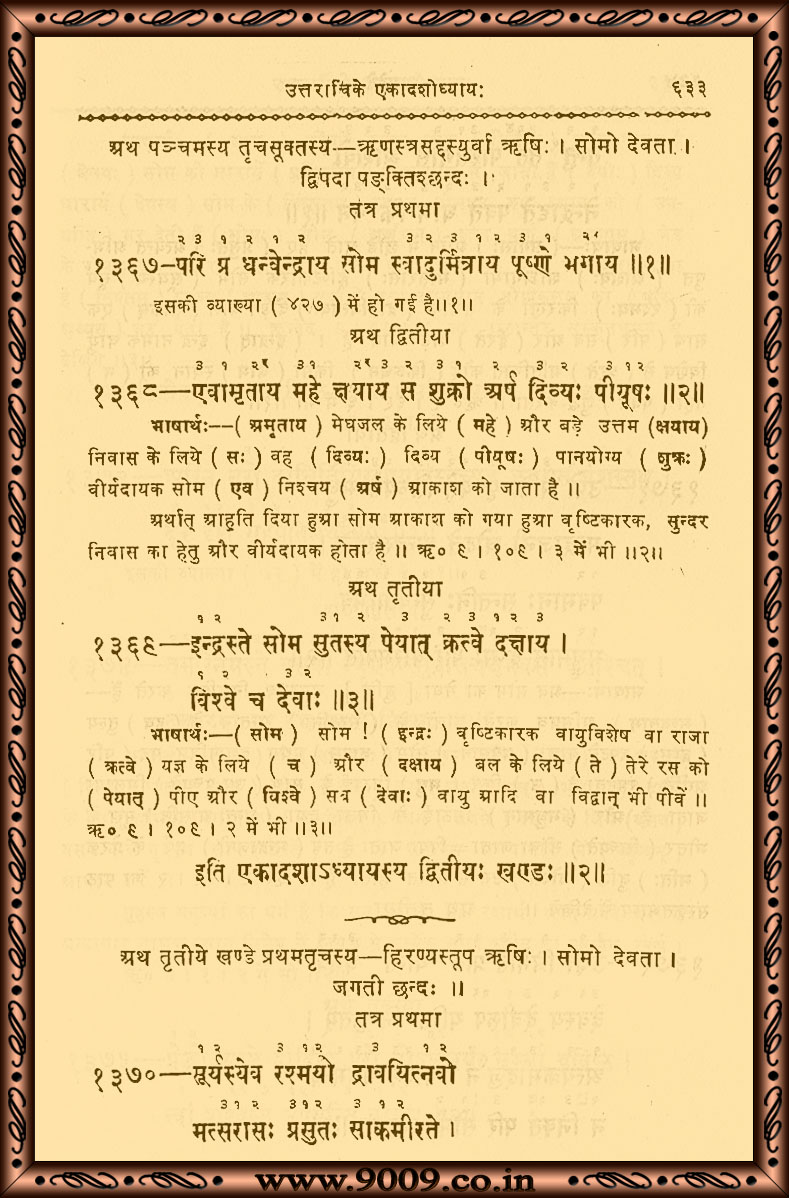 उत्तरार्चिके एकादशोध्यायः ६३३
अथ पञ्चमस्य तृचसूक्तस्य—ऋणस्त्रसद्दस्युर्वा ऋषिः । सोमो देवता ।
द्विपदा पङ्क्तिश्छन्दः ।
तत्र प्रथमा
२ ३ १ २ १ २ ३ २ ३ १ २ ३ १ २र
१३६७-परि प्र धन्वेन्द्राय सोम स्वादुर्मित्राय पूष्णे भगाय ॥१॥
इसकी व्याख्या ( ४२७ ) में हो गई है॥१॥
अथ द्वितीया
३ १ २र ३१ २र ३ २ ३ १ २ ३ २ ३ १२
१३६८—एवामृताय महे क्षयाय स शुक्रो अर्ष दिव्यः पीयूषः ॥२॥
भाषार्थः--( अमृताय ) मेघजल के लिये ( महे ) और बड़े उत्तम (क्षयाय)
निवास के लिये ( सः ) वह ( दिव्यः ) दिव्य ( पीयूषः ) पानयोग्य ( शुक्रः )
वीर्यदायक सोम ( एव ) निश्चय ( अर्ष ) आकाश को जाता है ॥
अर्थात् आहूति दिया हुआ सोम आकाश को गया हुआ वृष्टिकारक, सुन्दर
निवास का हेतु और वीर्यदायक होता है ॥ ऋ० ९ । १०९ । ३ में भी ॥२॥
अथ तृतीया
१ २ ३१ २ ३ २ ३ १ २ ३
१३६९—इन्द्रस्ते सोम सुतस्य पेयात् क्रत्वे दक्षाय ।
१ २ ३ २
विश्वे च देवाः ॥३॥
भाषार्थः—( सोम ) सोम ! ( इन्द्रः ) वृष्टिकारक वायुविशेष वा राजा
( क्रत्वे ) यज्ञ के लिये ( च ) और ( दक्षाय ) बल के लिये ( ते ) तेरे रस को
( पेयात् ) पीए और ( विश्वे ) सब ( देवाः ) वायु आदि वा विद्वान् भी पीवें ॥
ऋ० ९ । १०९ । २ में भी ॥३॥
इति एकादशाऽध्यायस्य द्वितीयः खण्डः ॥२॥
अथ तृतीये खण्डे प्रथमतृचस्य—हिरण्यस्तूप ऋषिः । सोमो देवता ।
जगती छन्दः ॥
तत्र प्रथमा
१ २ ३ १२ ३ १ २
१३७०—सूर्यस्येव रश्मयो द्रावयित्नवो
३१ २ ३१२ ३ १ २
मत्सरासः प्रसुतः साकमीरते ।
www.9009.co.in